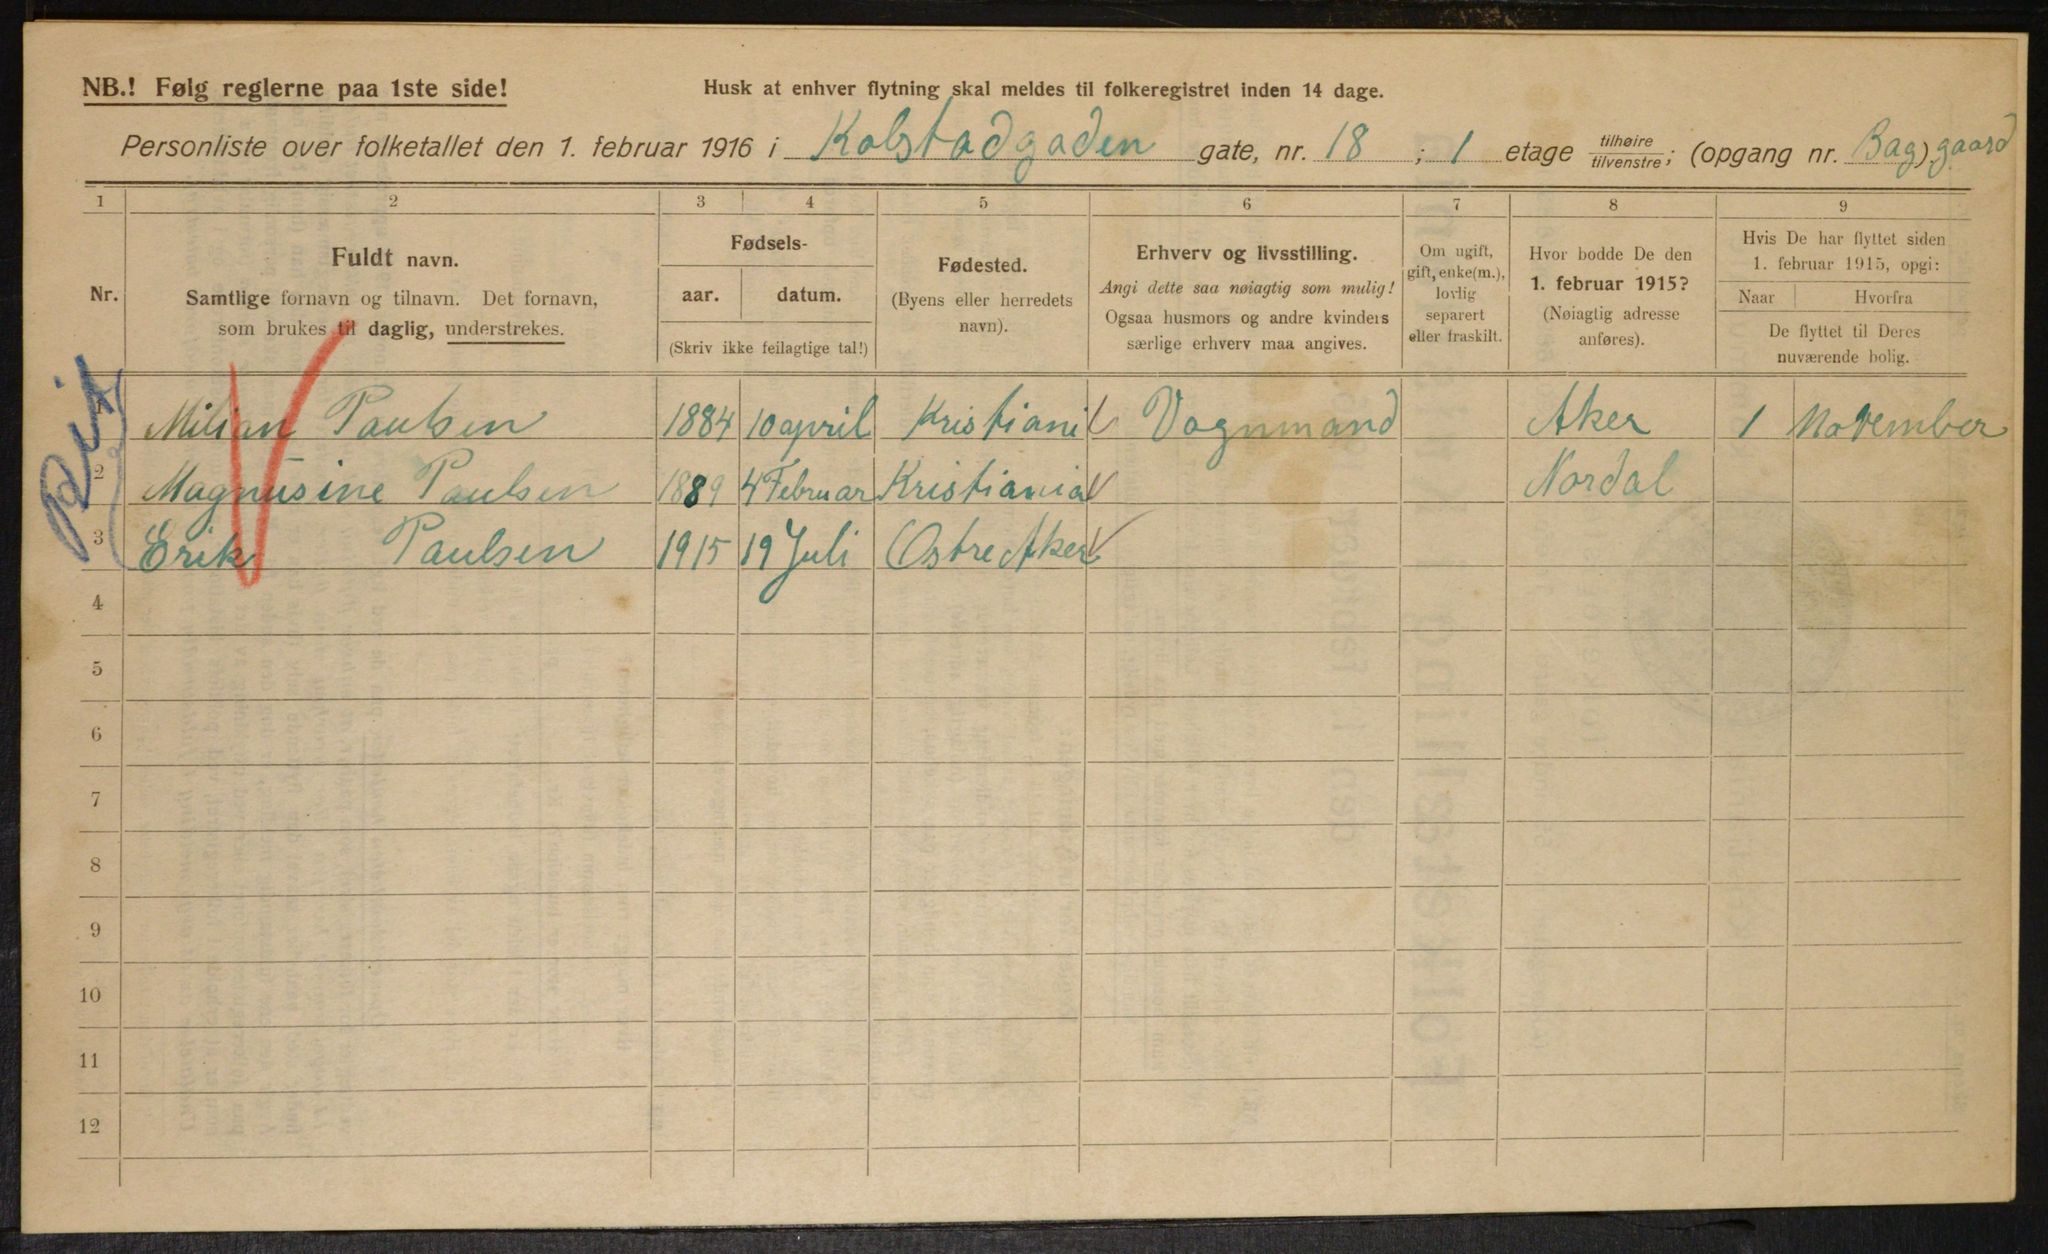 NB.! Følg reglerne paa 1ste side!
Husk at enhver flytning skal meldes til folkeregistret inden 14 dage.
Personliste over folketallet den 1. februar 1916 i Kolstadgaden gate, nr. 18 ; 1 etage tilhøire tilvenstre; (opgang nr. Bag) gaard
1 2 3 4 5 6 7 8 9
Nr.
Fuldt navn.
Samtlige fornavn og tilnavn. Det fornavn,
som brukes til daglig, understrekes.
Fødsels-
aar. datum.
(Skriv ikke feilagtige tal!)
Fødested.
(Byens eller herredets
navn).
Erhverv og livsstilling.
Angi dette saa nøiagtig som mulig!
Ogsaa husmors og andre kvinders
særlige erhverv maa angives.
Om ugift,
gift, enke(m.),
lovlig
separert
eller fraskilt.
Hvor bodde De den
1. februar 1915?
(Nøiagtig adresse
anføres).
Hvis De har flyttet siden
1. februar 1915, opgi:
Naar Hvorfra
De flyttet til Deres
nuværende bolig.
1 Milian Paulsen 1884 10 april Kristiani Vognmand Aker 1 November
2 Magnusine Paulsen 1889 4 Februar Kristiania Nordal
3 Erik Paulsen 1915 19 Juli Ostre Aker
4
5
6
7
8
9
10
11
12